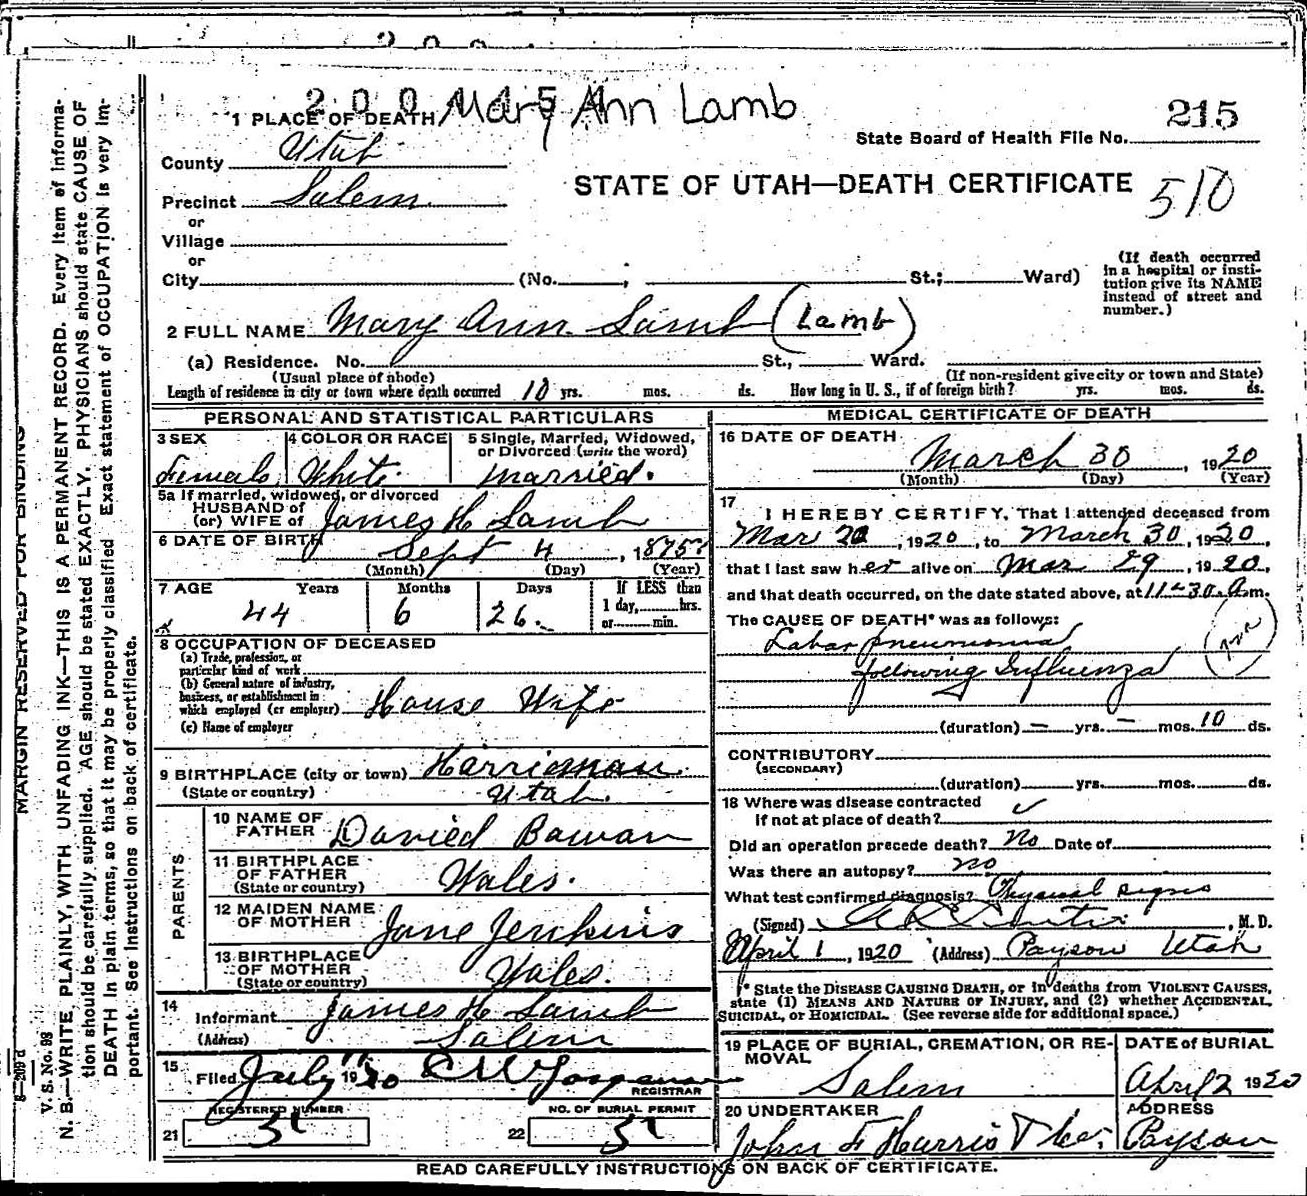 2 0 0 4 1 5 Mary Ann Lamb
1 PLACE OF DEATH
State Board of Health File No. 215
County Utah
STATE OF UTAH—DEATH CERTIFICATE 510
Precinct Salem
or
Village
or
City (No. ; St.; Ward)
(If death occurred in a hospital or insti-
tution give its NAME
instead of street and
number.)
2 FULL NAME Mary Ann Lamb (Lamb)
(a) Residence. No. St., Ward.
(Usual place of abode) (If non-resident give city or town and State)
Length of residence in city or town where death occurred 10 yrs. mos. ds. How long in U. S., if of foreign birth? yrs. mos. ds.
PERSONAL AND STATISTICAL PARTICULARS
3 SEX 4 COLOR OR RACE 5 Single, Married, Widowed,
or Divorced (write the word)
Female White Married.
5a If married, widowed, or divorced
HUSBAND of
(or) WIFE of James H Lamb
6 DATE OF BIRTH Sept 4, 1875
(Month) (Day) (Year)
7 AGE Years Months Days If LESS than
1 day, hrs.
or min.
44 6 26
8 OCCUPATION OF DECEASED
(a) Trade, profession, or
particular kind of work
(b) General nature of industry,
business, or establishment in
which employed (or employer) House Wife
(c) Name of employer
9 BIRTHPLACE (city or town) Herriman
(State or country) Utah.
PARENTS
10 NAME OF
FATHER Daniel Bowan
11 BIRTHPLACE
OF FATHER
(State or country) Wales.
12 MAIDEN NAME
OF MOTHER Jane Jenkins
13 BIRTHPLACE
OF MOTHER
(State or country) Wales.
14
Informant James H Lamb
(Address) Salem
15
Filed July 1920
REGISTRAR
REGISTERED NUMBER NO. OF BURIAL PERMIT
21 22
MEDICAL CERTIFICATE OF DEATH
16 DATE OF DEATH
March 30, 1920
(Month) (Day) (Year)
17
I HEREBY CERTIFY, That I attended deceased from
Mar 20, 1920, to March 30, 1920,
that I last saw her alive on Mar 29, 1920,
and that death occurred, on the date stated above, at 11-30 a m.
The CAUSE OF DEATH* was as follows:
Lobar pneumonia
following Influenza
(duration) — yrs. — mos. 10 ds.
CONTRIBUTORY
(SECONDARY)
(duration) yrs. mos. ds.
18 Where was disease contracted
if not at place of death?
Did an operation precede death? No Date of
Was there an autopsy? no
What test confirmed diagnosis? Physical signs
(Signed) , M. D.
April 1, 1920 (Address) Payson Utah
* State the DISEASE CAUSING DEATH, or in deaths from VIOLENT CAUSES,
state (1) MEANS AND NATURE OF INJURY, and (2) whether ACCIDENTAL,
SUICIDAL, or HOMICIDAL. (See reverse side for additional space.)
19 PLACE OF BURIAL, CREMATION, OR RE-
MOVAL
Salem
DATE OF BURIAL
April 2 1920
20 UNDERTAKER
John F Harris & Co.
ADDRESS
Payson
READ CAREFULLY INSTRUCTIONS ON BACK OF CERTIFICATE.
MARGIN RESERVED FOR BINDING
V. S. No. 98
N. B.—WRITE PLAINLY, WITH UNFADING INK—THIS IS A PERMANENT RECORD. Every item of informa-
tion should be carefully supplied. AGE should be stated EXACTLY. PHYSICIANS should state CAUSE OF
DEATH in plain terms, so that it may be properly classified. Exact statement of OCCUPATION is very im-
portant. See instructions on back of certificate.